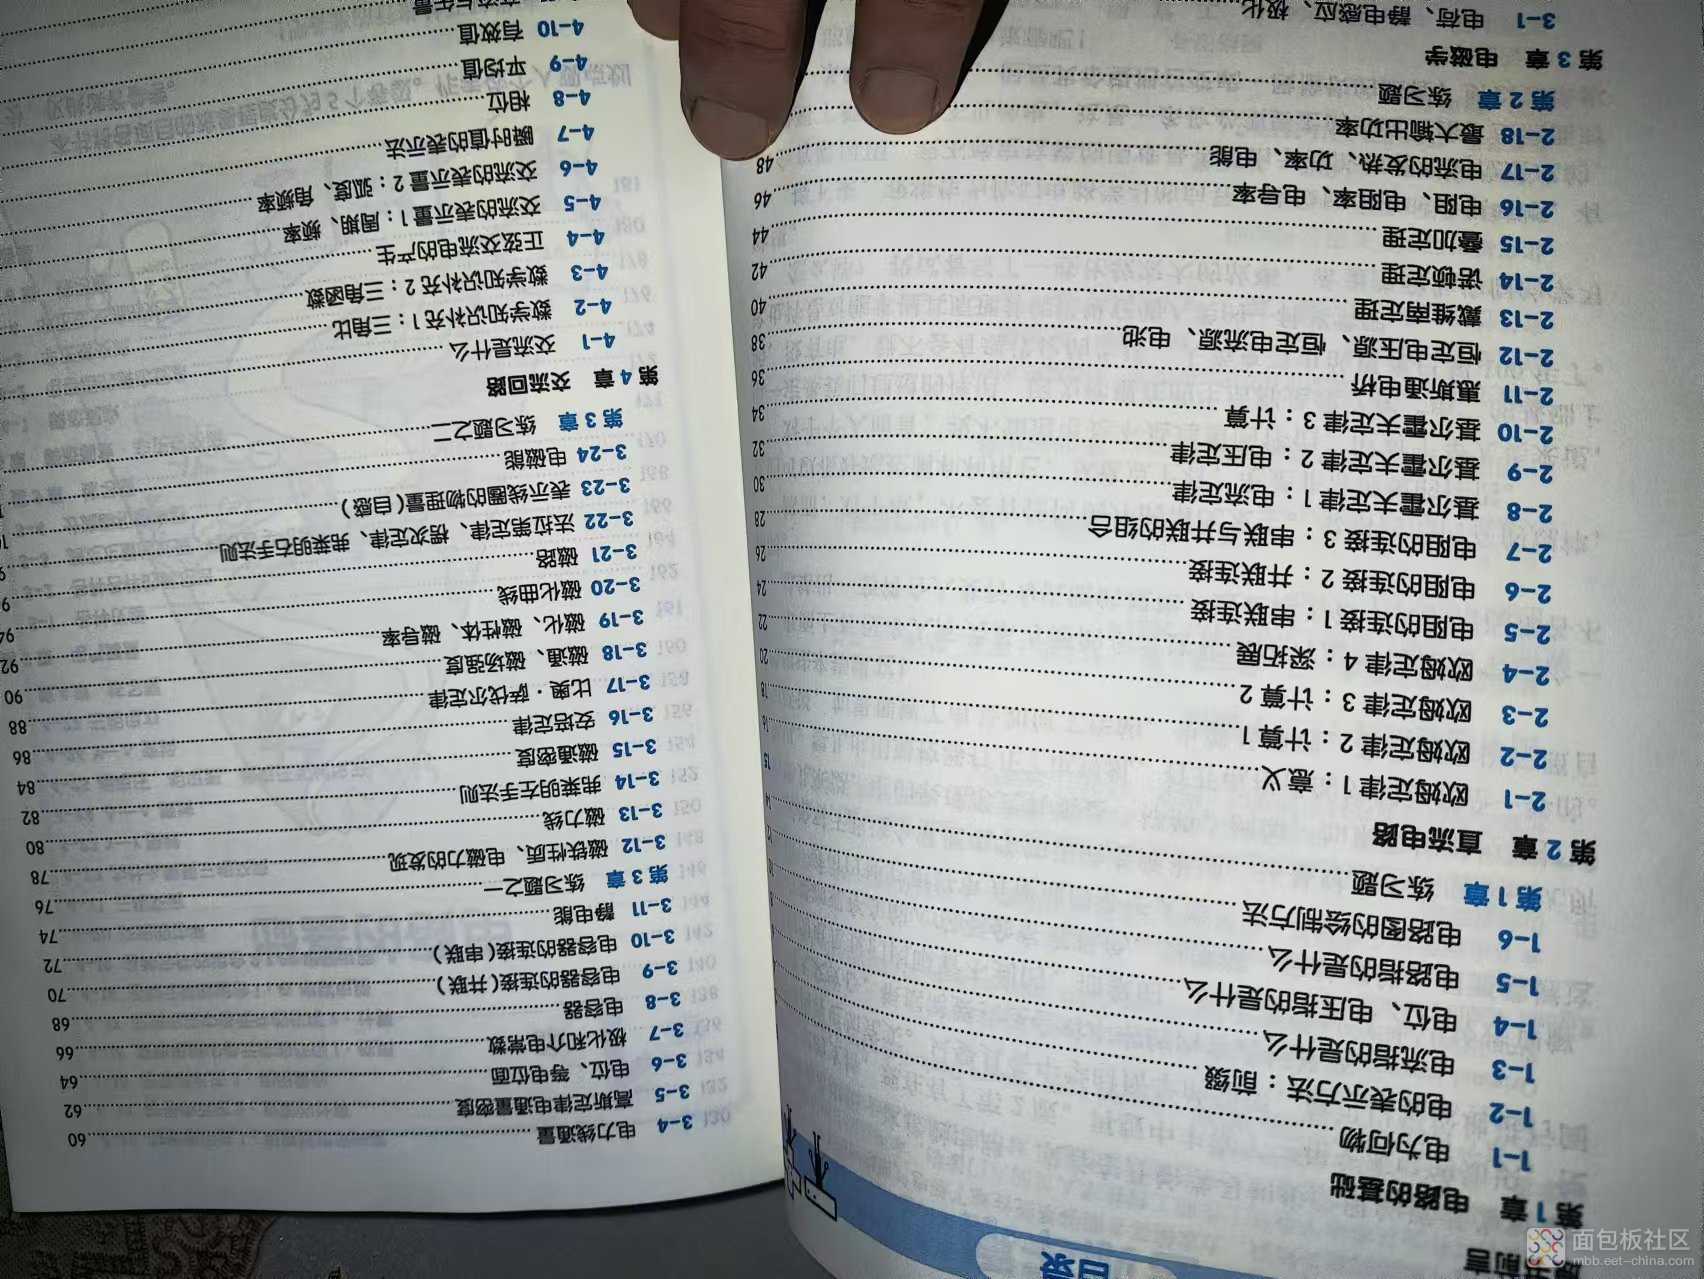 目录
前言
第1章 电路的基础
1-1 电为何物
1-2 电的表示方法：前缀
1-3 电流指的是什么
1-4 电位、电压指的是什么
1-5 电路指的是什么
1-6 电路图的绘制方法
第1章 练习题 14
第2章 直流电路
2-1 欧姆定律1：意义 15
2-2 欧姆定律2：计算1 16
2-3 欧姆定律3：计算2 18
2-4 欧姆定律4：深拓展 20
2-5 电阻的连接1：串联连接 22
2-6 电阻的连接2：并联连接 24
2-7 电阻的连接3：串联与并联的组合 26
2-8 基尔霍夫定律1：电流定律 28
2-9 基尔霍夫定律2：电压定律 30
2-10 基尔霍夫定律3：计算 32
2-11 惠斯通电桥 34
2-12 恒定电压源、恒定电流源、电池 36
2-13 戴维南定理 38
2-14 诺顿定理 40
2-15 叠加定理 42
2-16 电阻、电阻率、电导率 44
2-17 电流的发热、功率、电能 46
2-18 最大输出功率 48
第2章 练习题
第3章 电磁学
3-1 电荷、静电感应、极化
3-4 电力线通量 60
3-5 高斯定律电通量密度 62
3-6 电位、等电位面 64
3-7 极化和介电常数 66
3-8 电容器 68
3-9 电容器的连接（并联） 70
3-10 电容器的连接（串联） 72
3-11 静电能 74
第3章 练习题之一 76
3-12 磁铁性质、电磁力的发现 78
3-13 磁力线 80
3-14 弗莱明左手法则 82
3-15 磁通密度 84
3-16 安培定律 86
3-17 比奥·萨伐尔定律 88
3-18 磁通、磁场强度 90
3-19 磁化、磁性体、磁导率 92
3-20 磁化曲线 94
3-21 磁路
3-22 法拉第定律、楞次定律、弗莱明右手法则
3-23 表示线圈的物理量（自感）
3-24 电磁能
第3章 练习题之二
第4章 交流回路
4-1 交流是什么
4-2 数学知识补充1：三角比
4-3 数学知识补充2：三角函数
4-4 正弦交流电的产生
4-5 交流的表示量1：周期、频率
4-6 交流的表示量2：弧度、角频率
4-7 瞬时值的表示法
4-8 相位
4-9 平均值
4-10 有效值
面包板社区
mbb.eet-china.com